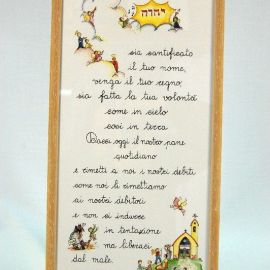 יהוה
sia santificato
il tuo nome,
venga il tuo regno,
sia fatta la tua volontà
come in cielo
così in terra
Dacci oggi il nostro pane
quotidiano
e rimetti a noi i nostri debiti
come noi li rimettiamo
ai nostri debitori
e non ci indurre
in tentazione
ma liberaci
dal male.